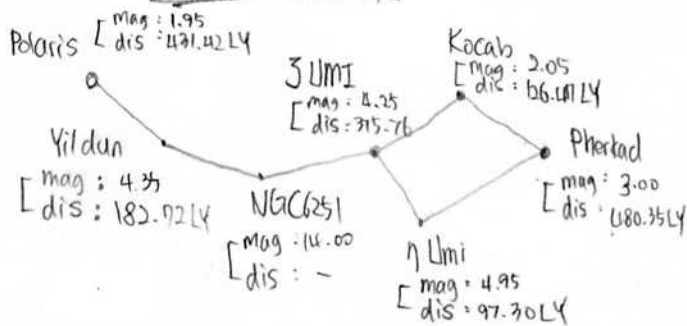 Polaris
[ mag : 1.95
dis : 431.42 LY
Yildun
[ mag : 4.35
dis : 182.72 LY
NGC6251
[ mag : 14.00
dis : -
3 UMI
[ mag : 4.25
dis : 375.76
Kocab
[ mag : 2.05
dis : 126.47 LY
Pherkad
[ mag : 3.00
dis : 480.35 LY
η Umi
[ mag : 4.95
dis : 97.30 LY